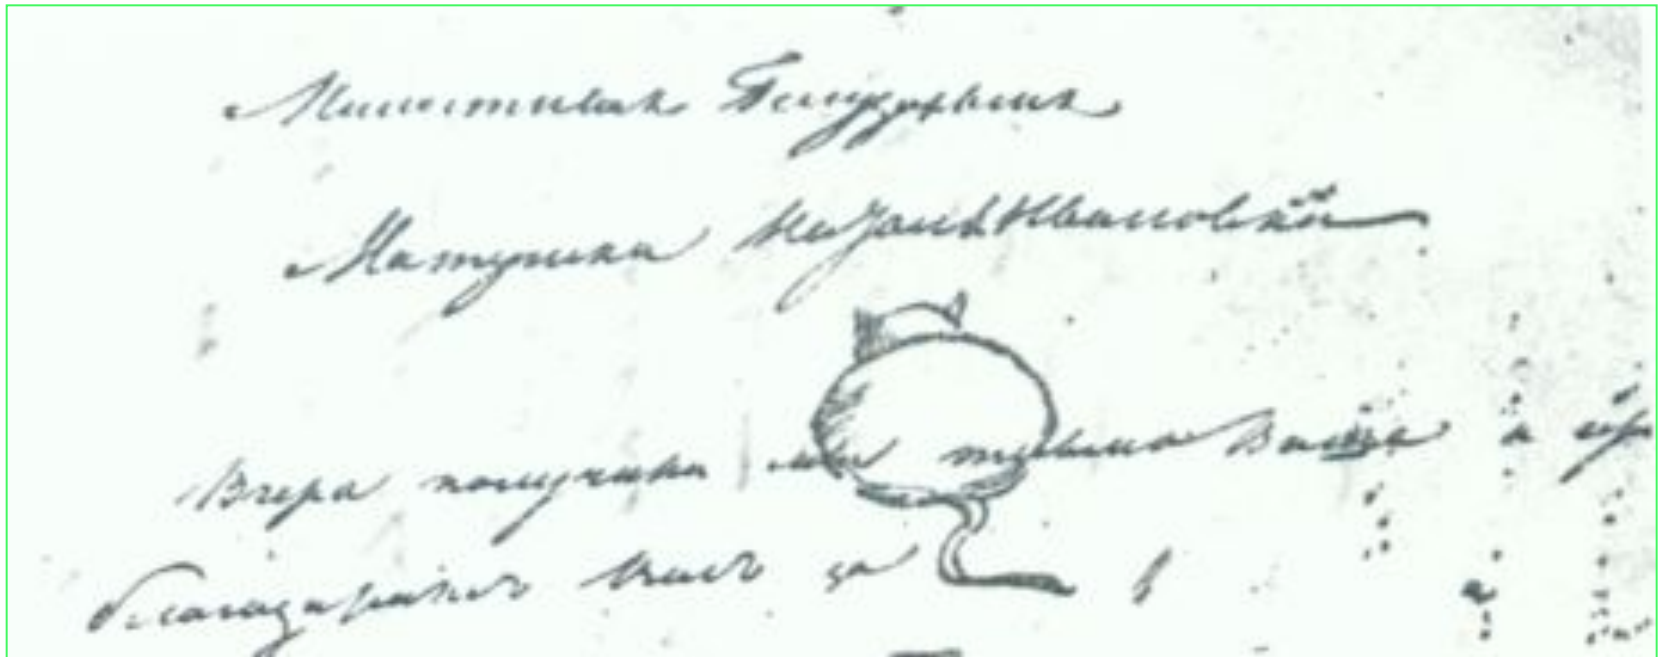 Милостивая Государыня
Матушка Наталья Ивановна
Вчера получили мы письмо Ваше и
благодаримъ васъ за